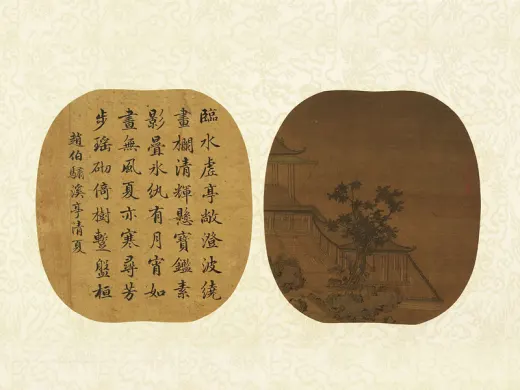 臨水虛亭敞澄波繞
畫欄清輝懸寶鑑素
影疊氷紈有月宵如
晝無風夏亦寒尋芳
步瑤砌倚樹蹔盤桓
趙伯驌溪亭清夏